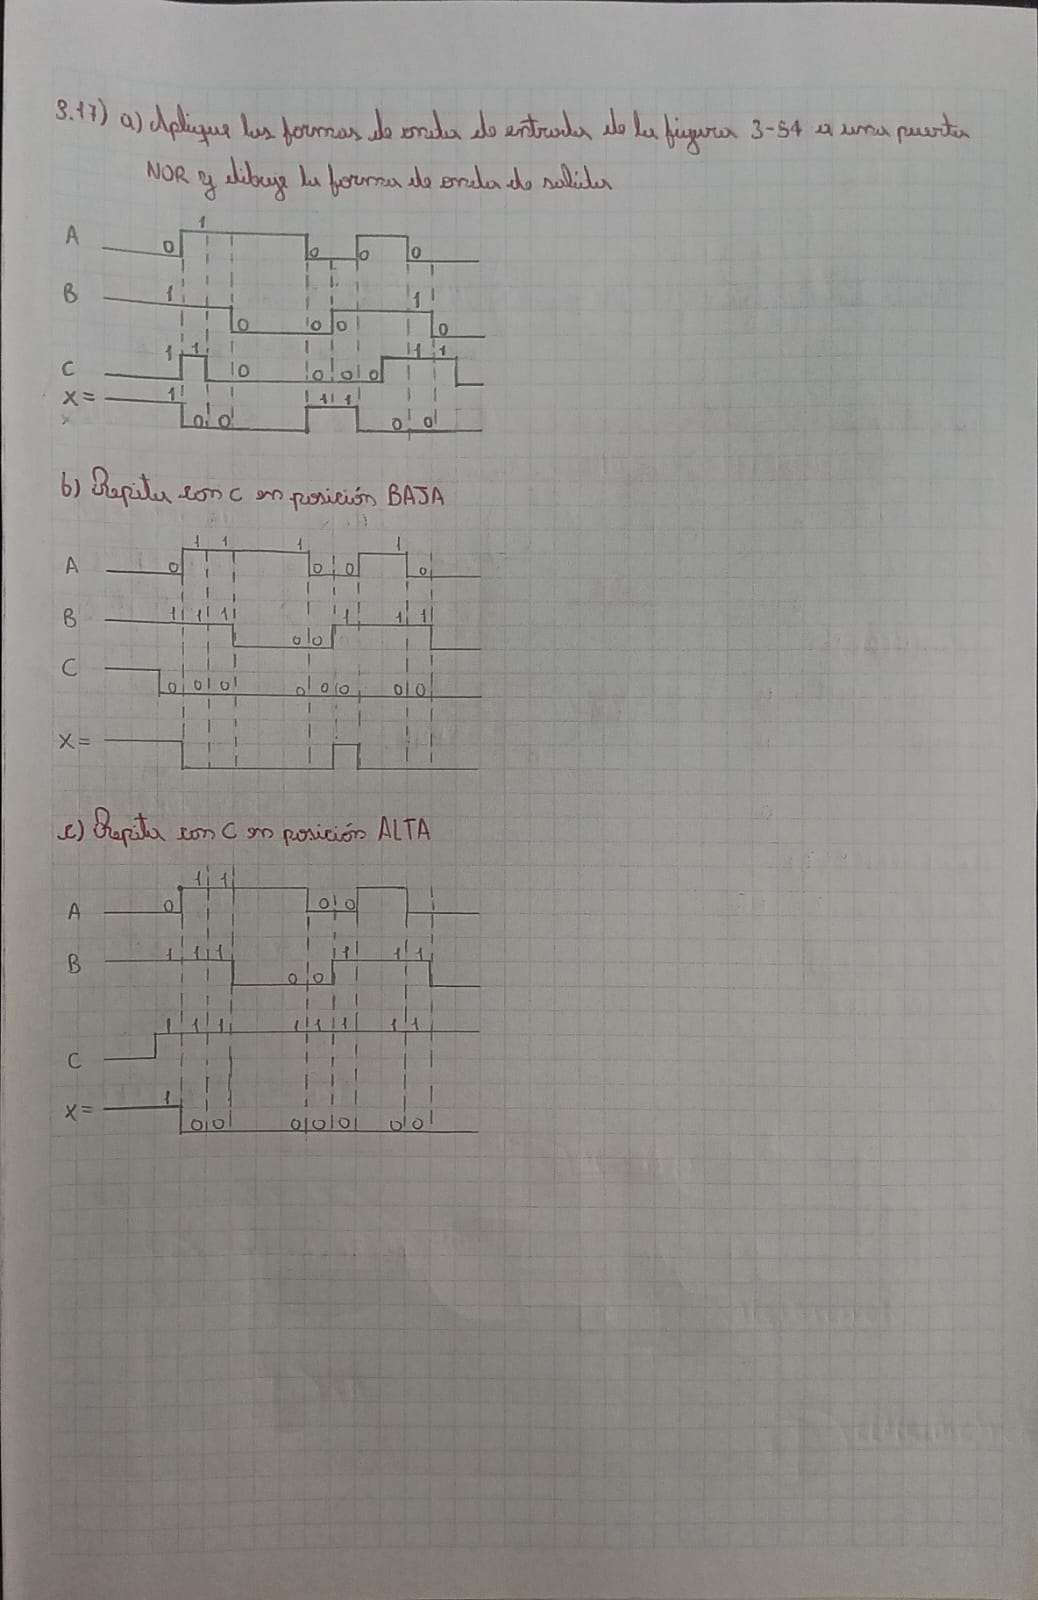 3.17) a) Aplique las formas de onda de entrada de la figura 3-54 a una puerta
NOR y dibuje la forma de onda de salida
A 0 1 0 0 0
B 1 0 0 0 1 0
C 1 1 0 0 0 0 1 1
X= 1 0 0 1 1 0 0
b) Repita con C en posición BAJA
A 0 1 1 1 0 0 1 0
B 1 1 1 0 0 1 1 1
C 0 0 0 0 0 0 0 0
X=
c) Repita con C en posición ALTA
A 0 1 1 0 0
B 1 1 1 0 0 1 1 1
C 1 1 1 1 1 1 1 1
X= 1 0 0 0 0 0 0 0